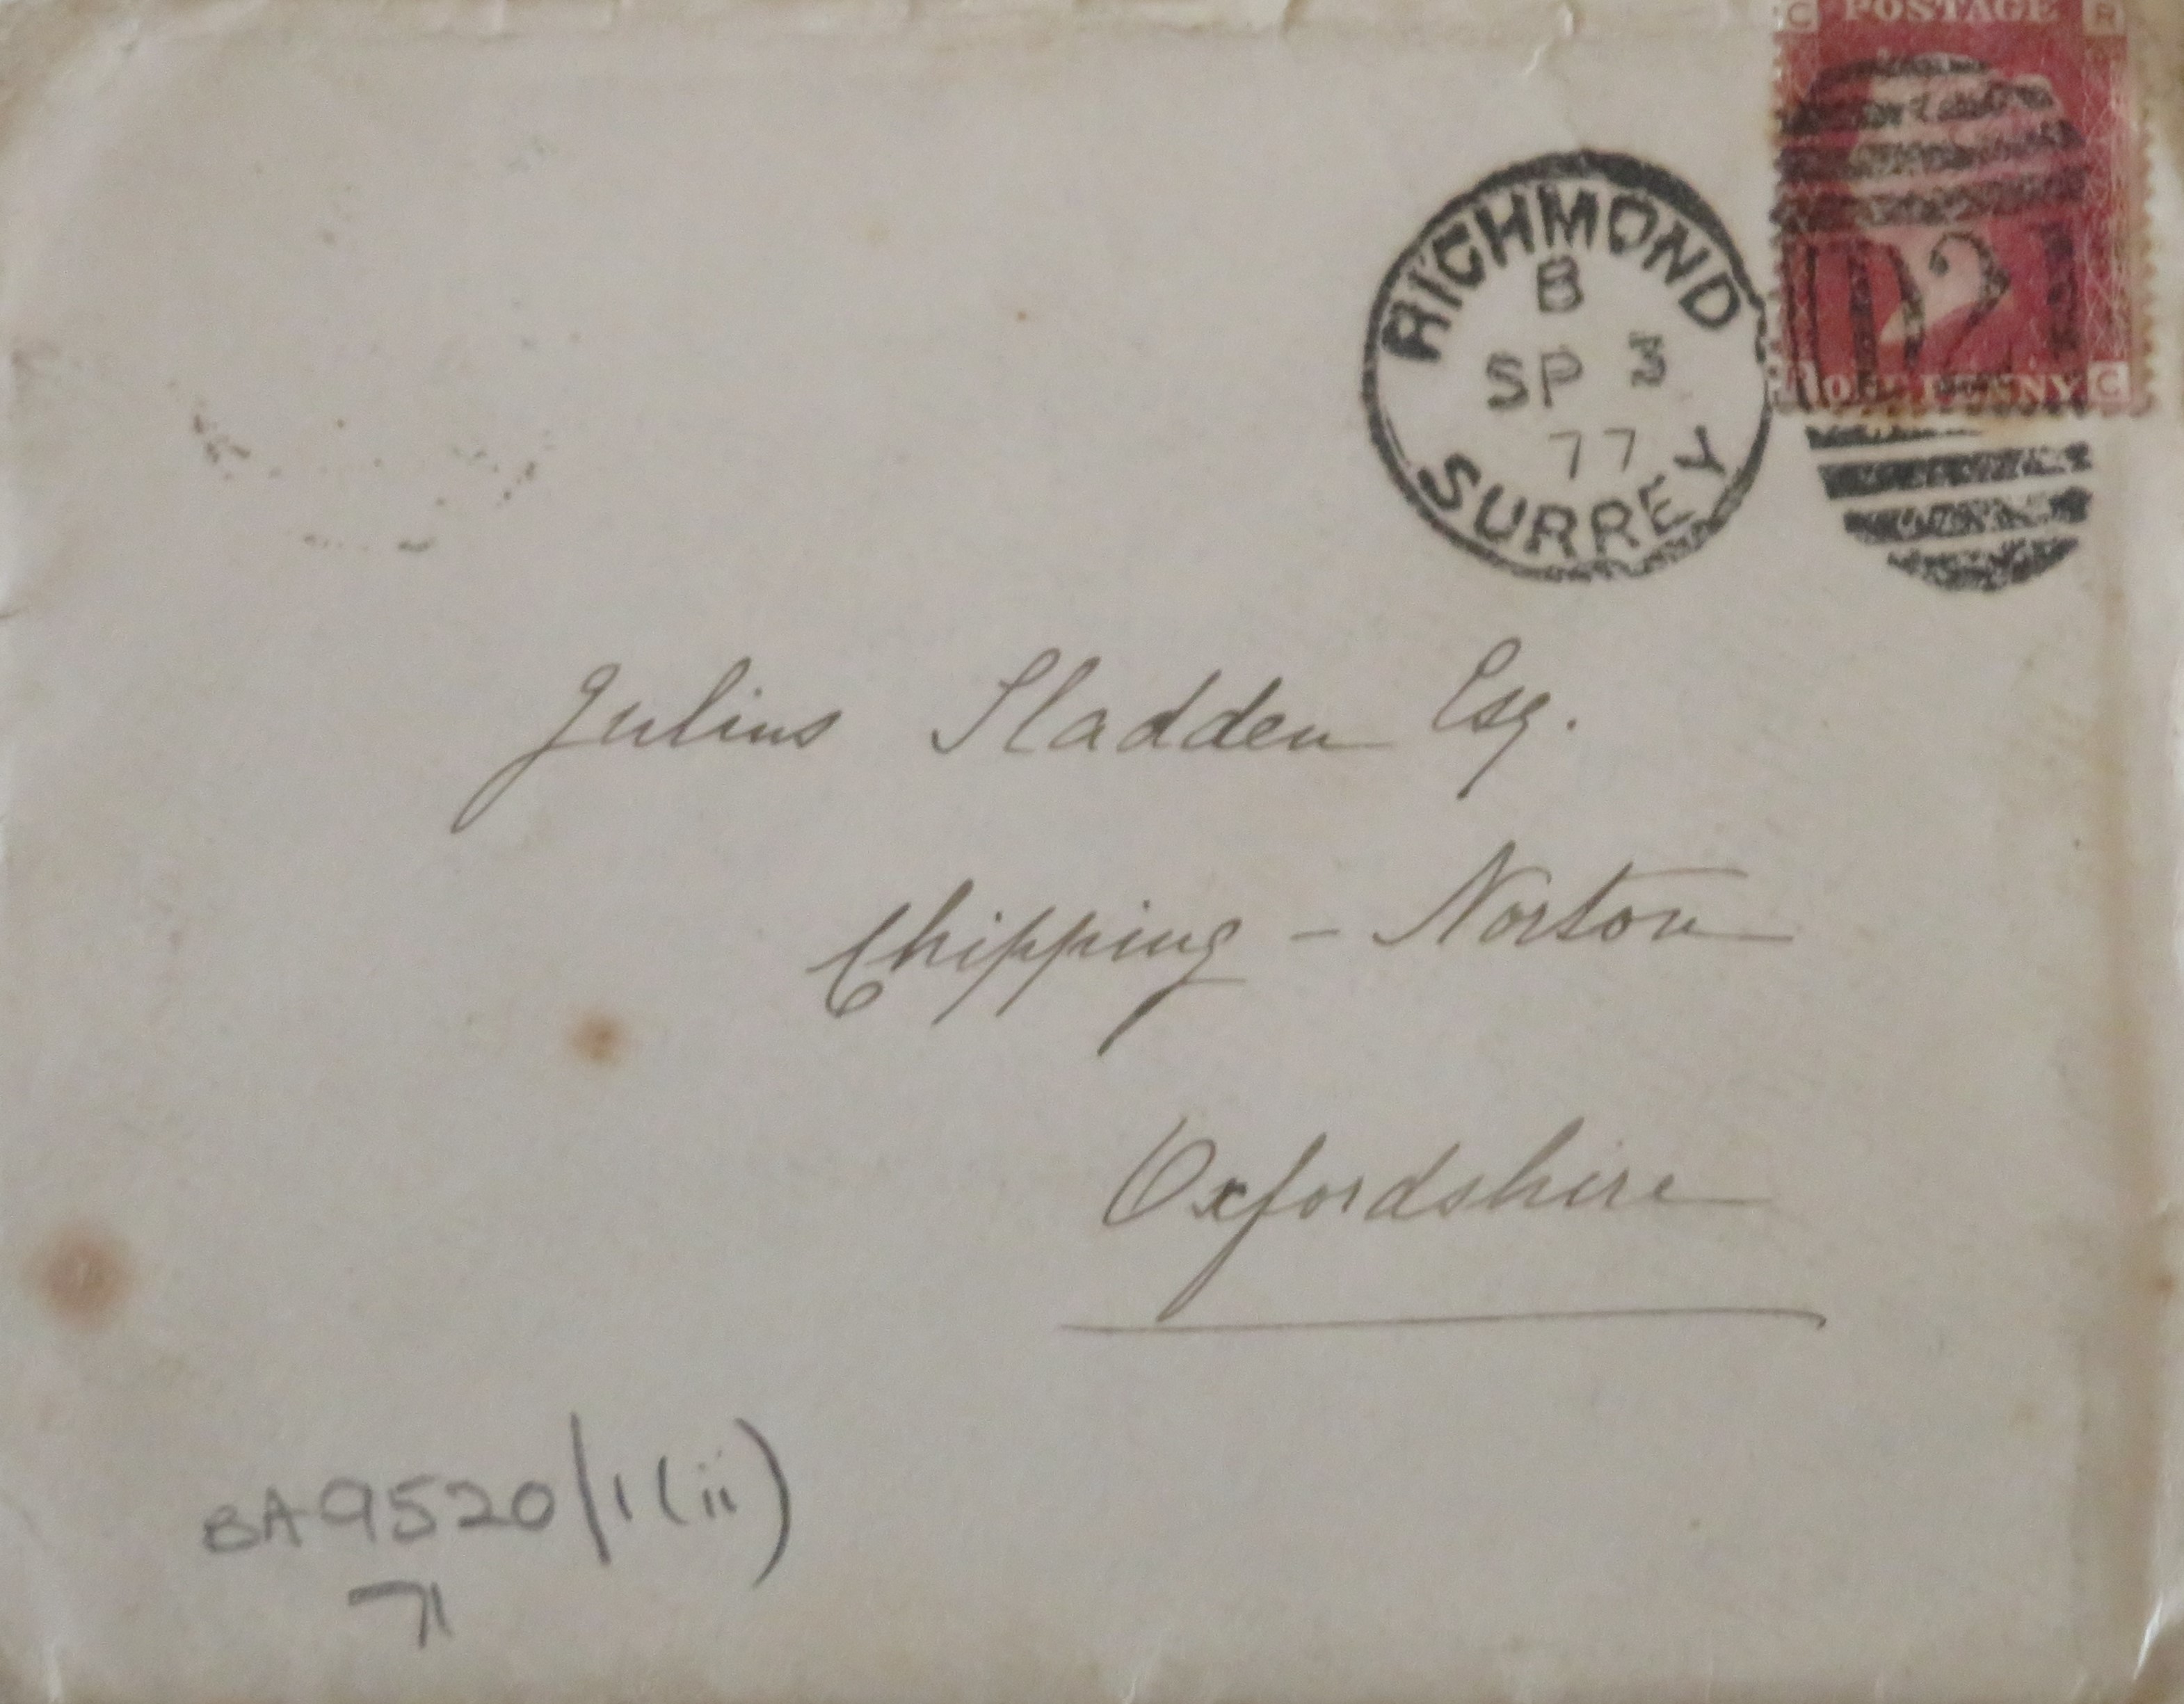 C POSTAGE R
RICHMOND
B
SP 3
77
SURREY
ONE PENNY C
Julius Sladden Esq.
Chipping - Norton
Oxfordshire
BA9520/1(ii)
71